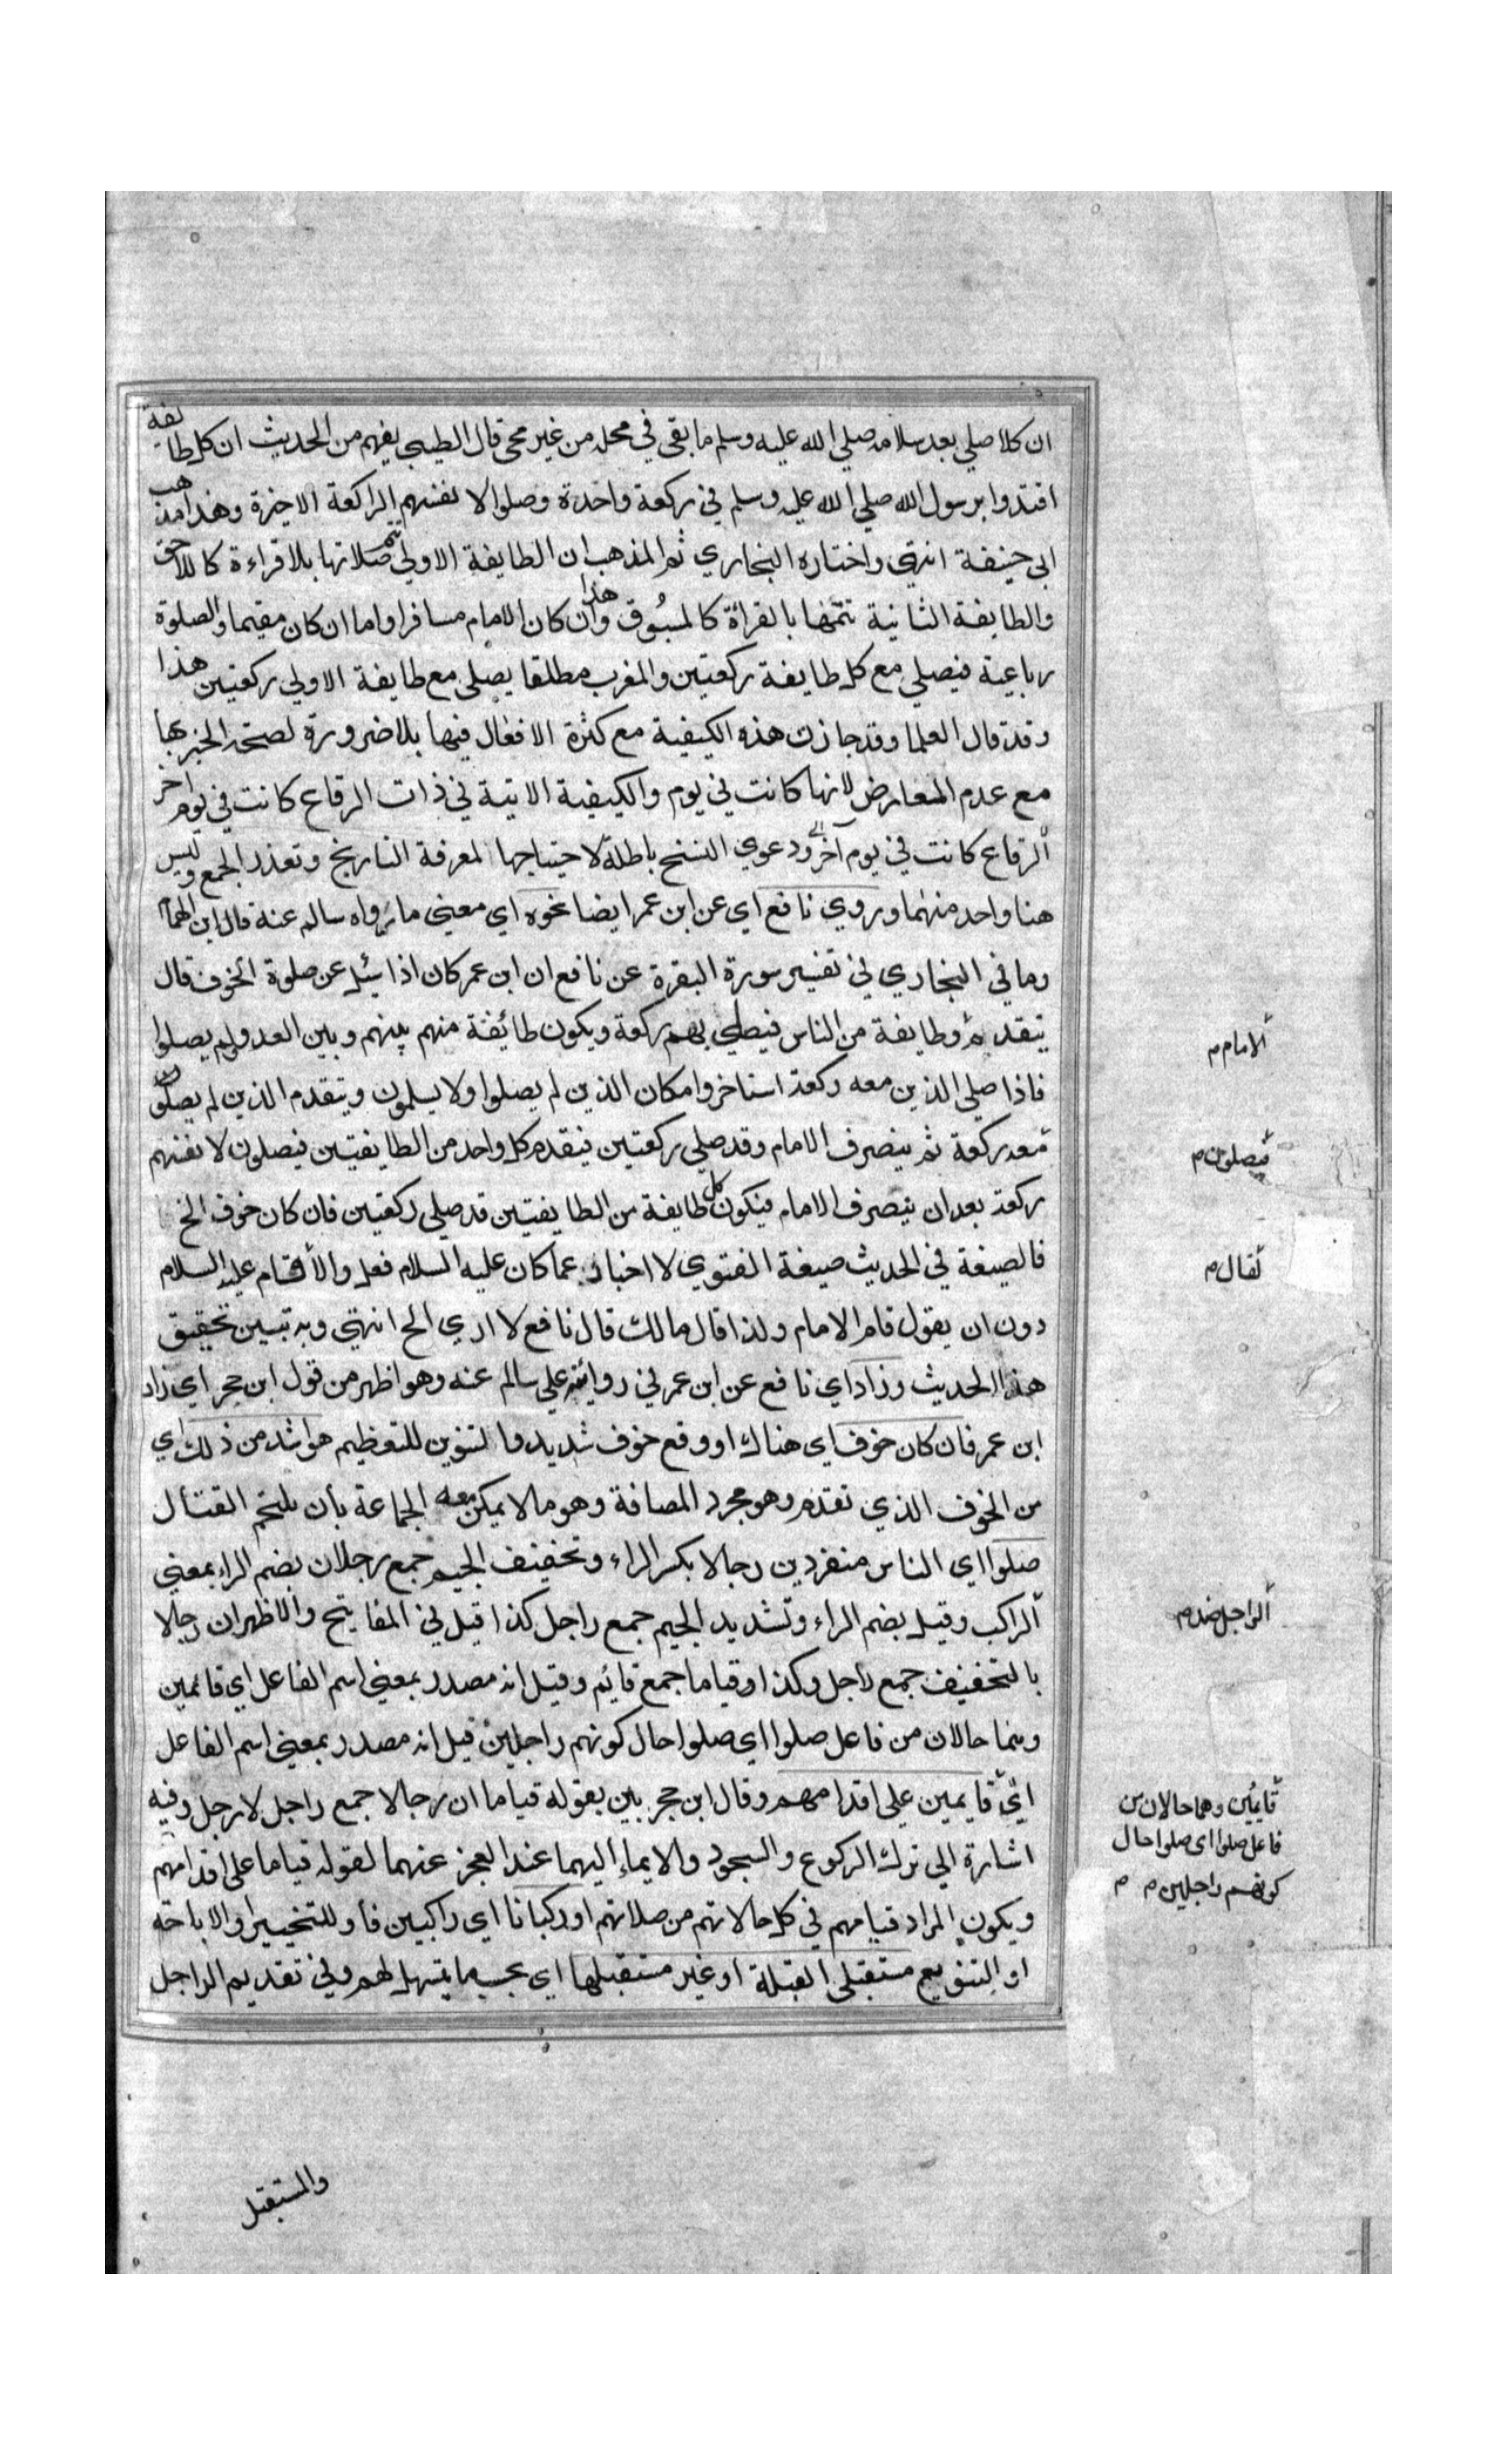 ان كلا صلي بعد سلامه صلي الله عليه وسلم ما بقي في محله من غير مجي قال الطيبي يفهم من الحديث ان كل طايفة
اقتدوا برسول الله صلي الله عليه وسلم في ركعة واحدة وصلوا لانفسهم الراكعة الاخيرة وهذا مذهب
ابي حنيفة انتهي واختاره البخاري ثم المذهب ان الطايفة الاولي تتم صلاتها بلا قراءة كاللاحق
والطايفة الثانية تتمها بالقرأة كالمسبوق وهذا ان كان الامام مسافرا واما ان كان مقيما والصلوة
رباعية فيصلي مع كل طايفة ركعتين والمغرب مطلقا يصلي مع طايفة الاولي ركعتين هذا
وقد قال العلما وقد جازت هذه الكيفية مع كثرة الافعال فيها بلا ضرورة لصحة الخبر بها
مع عدم المعارض لانها كانت في يوم والكيفية الاتية في ذات الرقاع كانت في يوم اخر
الرقاع كانت في يوم آخر ودعوي النسخ باطلة لاحتياجها لمعرفة التاريخ وتعذر الجمع وليس
هنا واحد منهما وروي نافع اي عن ابن عمر ايضا نحوه اي معني ما رواه سالم عنه قال ابن الهمام
وما في البخاري في تفسير سورة البقرة عن نافع ان ابن عمر كان اذا سئل عن صلوة الخوف قال
يتقدم وطايفة من الناس فيصلي بهم ركعة ويكون طائفة منهم بينهم وبين العدو لم يصلوا
الامام م
فاذا صلي الذين معه ركعة استاخروا مكان الذين لم يصلوا ولا يسلمون ويتقدم الذين لم يصلوا
معه ركعة ثم ينصرف الامام وقد صلي ركعتين فيتقدم كل واحد من الطايفتين فيصلون لانفسهم
فيصلون م
ركعة بعد ان ينصرف الامام فيكون كل طايفة من الطايفتين قد صلي ركعتين فان كان خوف الخ
فالصيغة في الحديث صيغة الفتوي لا اخبار عما كان عليه السلام فعل والا قام عليه السلام
لقال م
دون ان يقول قام الامام ولذا قال مالك قال نافع لا اري الخ انتهي وبه تبين تحقيق
هذا الحديث وزاد اي نافع عن ابن عمر في روايته علي سالم عنه وهو اظهر من قول ابن حجر اي زاد
ابن عمر فان كان خوف اي هناك او وقع خوف شديد فالتنوين للتعظيم هو اشد من ذلك اي
من الخوف الذي تقدم وهو مجرد المصافة وهو ما لا يمكن معه الجماعة بأن يلتحم القتال
صلوا اي الناس منفردين رجالا بكسر الراء وتخفيف الجيم جمع رجلان بضم الراء بمعني
الراكب وقيل بضم الراء وتشديد الجيم جمع راجل كذا قيل في المفاتيح والاظهر ان رجالا
الراجل ضد م
بالتخفيف جمع راجل وكذا قوله قياما جمع قايم وقيل انه مصدر بمعني اسم الفاعل اي قائمين
وهما حالان من فاعل صلوا اي صلوا حال كونهم راجلين قيل انه مصدر بمعني اسم الفاعل
اي قايمين علي اقدامهم وقال ابن حجر بين بقوله قياما ان رجالا جمع راجل لا رجل وفيه
قايمين وهما حالان من
فاعل صلوا اي صلوا حال
كونهم راجلين م م
اشارة الي ترك الركوع والسجود والايماء اليهما عند العجز عنهما لقوله قياما علي اقدامهم
ويكون المراد قيامهم في كل حالاتهم من صلاتهم او ركبانا اي راكبين فاو للتخيير او الاباحة
او التنويع مستقبلي القبلة او غير مستقبليها اي بحسب ما يتسهل لهم وفي تقديم الراجل
والمستقبل